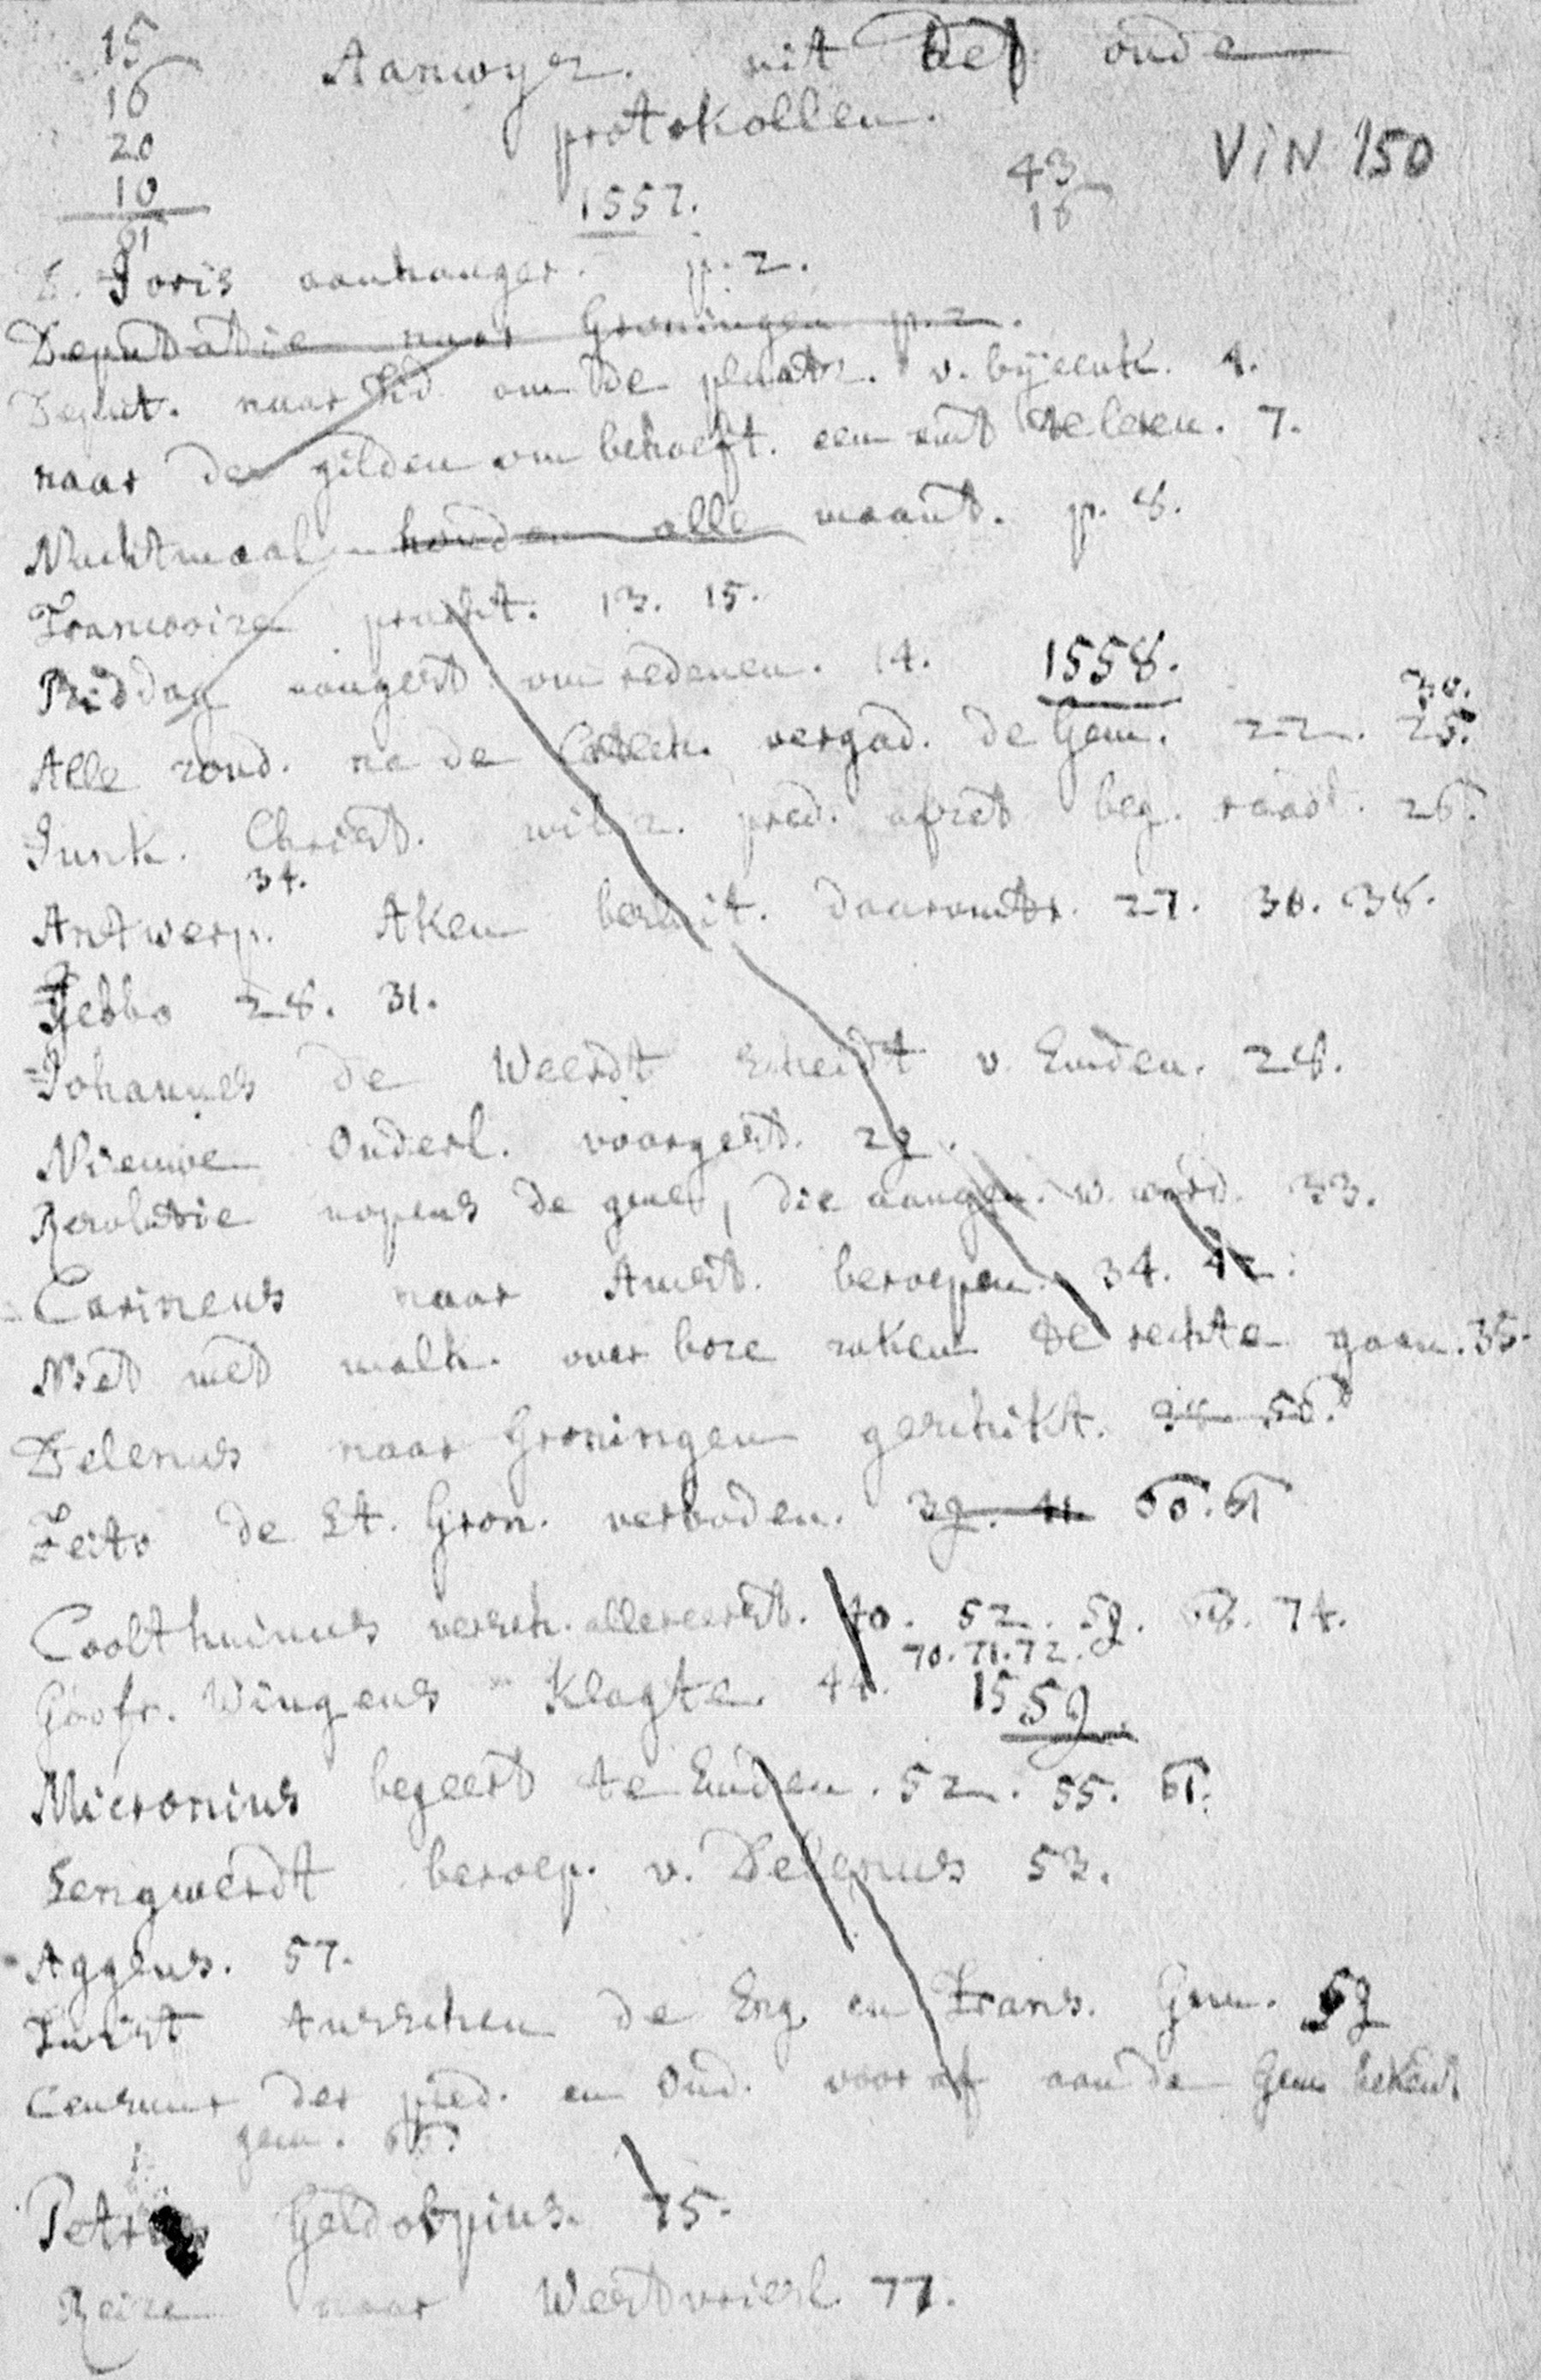 15
16
20
10
61
Aanwyz. uit het oude
protokollen.
VIN 150
43
18
1557.
D. Joris aanhanger. p. 2.
Deputatie naar Groningen p. 2.
Deput. naar om de plaats. v. byeenk. 4.
naar de gilden om behoeft. een amt te leren. 7.
Nachtmaal houden alle maant. p. 8.
Francoize predikt. 13. 15.
Biddag aangest. om redenen. 14.
1558.
Alle zond. na de Catech. vergad. de Gem. 22. 25. 30.
Junk. Christ. wil z. pred. afzet. beg. raad. 26.
Antwerp. 34. Aken besluit. daaromtr. 27. 30. 38.
Jebbo 28. 31.
Johannes de Weerdt scheidt v. Emden. 28.
Nieuwe Ouderl. voorgest. 29.
Resolutie nopens de gene, die aangen. w. word. 33.
Carineus naar Amst. beroepen. 34. 42.
Niet met malk. over boze zaken te rechte gaan. 35.
Delenus naar Groningen geschikt. 38. 56.
Feito de St. Gron. verboden. 39. 41. 60. 61
Coolthuinus versch. allereerst. 40. 52. 59. 68. 74.
70. 71. 72.
Godfr. Wingens Klagte. 44.
1559.
Micronius begeert te Emden. 52. 55. 61.
Lengwerdt beroep. v. Delenus 53.
Aggeus. 57.
Twist tusschen de Eng. en Frans. Gem. 59
Censuur der pred. en Oud. voor af aan de Gem. bekent
gem. 65.
Petrus Geldorpius. 75.
Reize naar Westvriesl. 77.